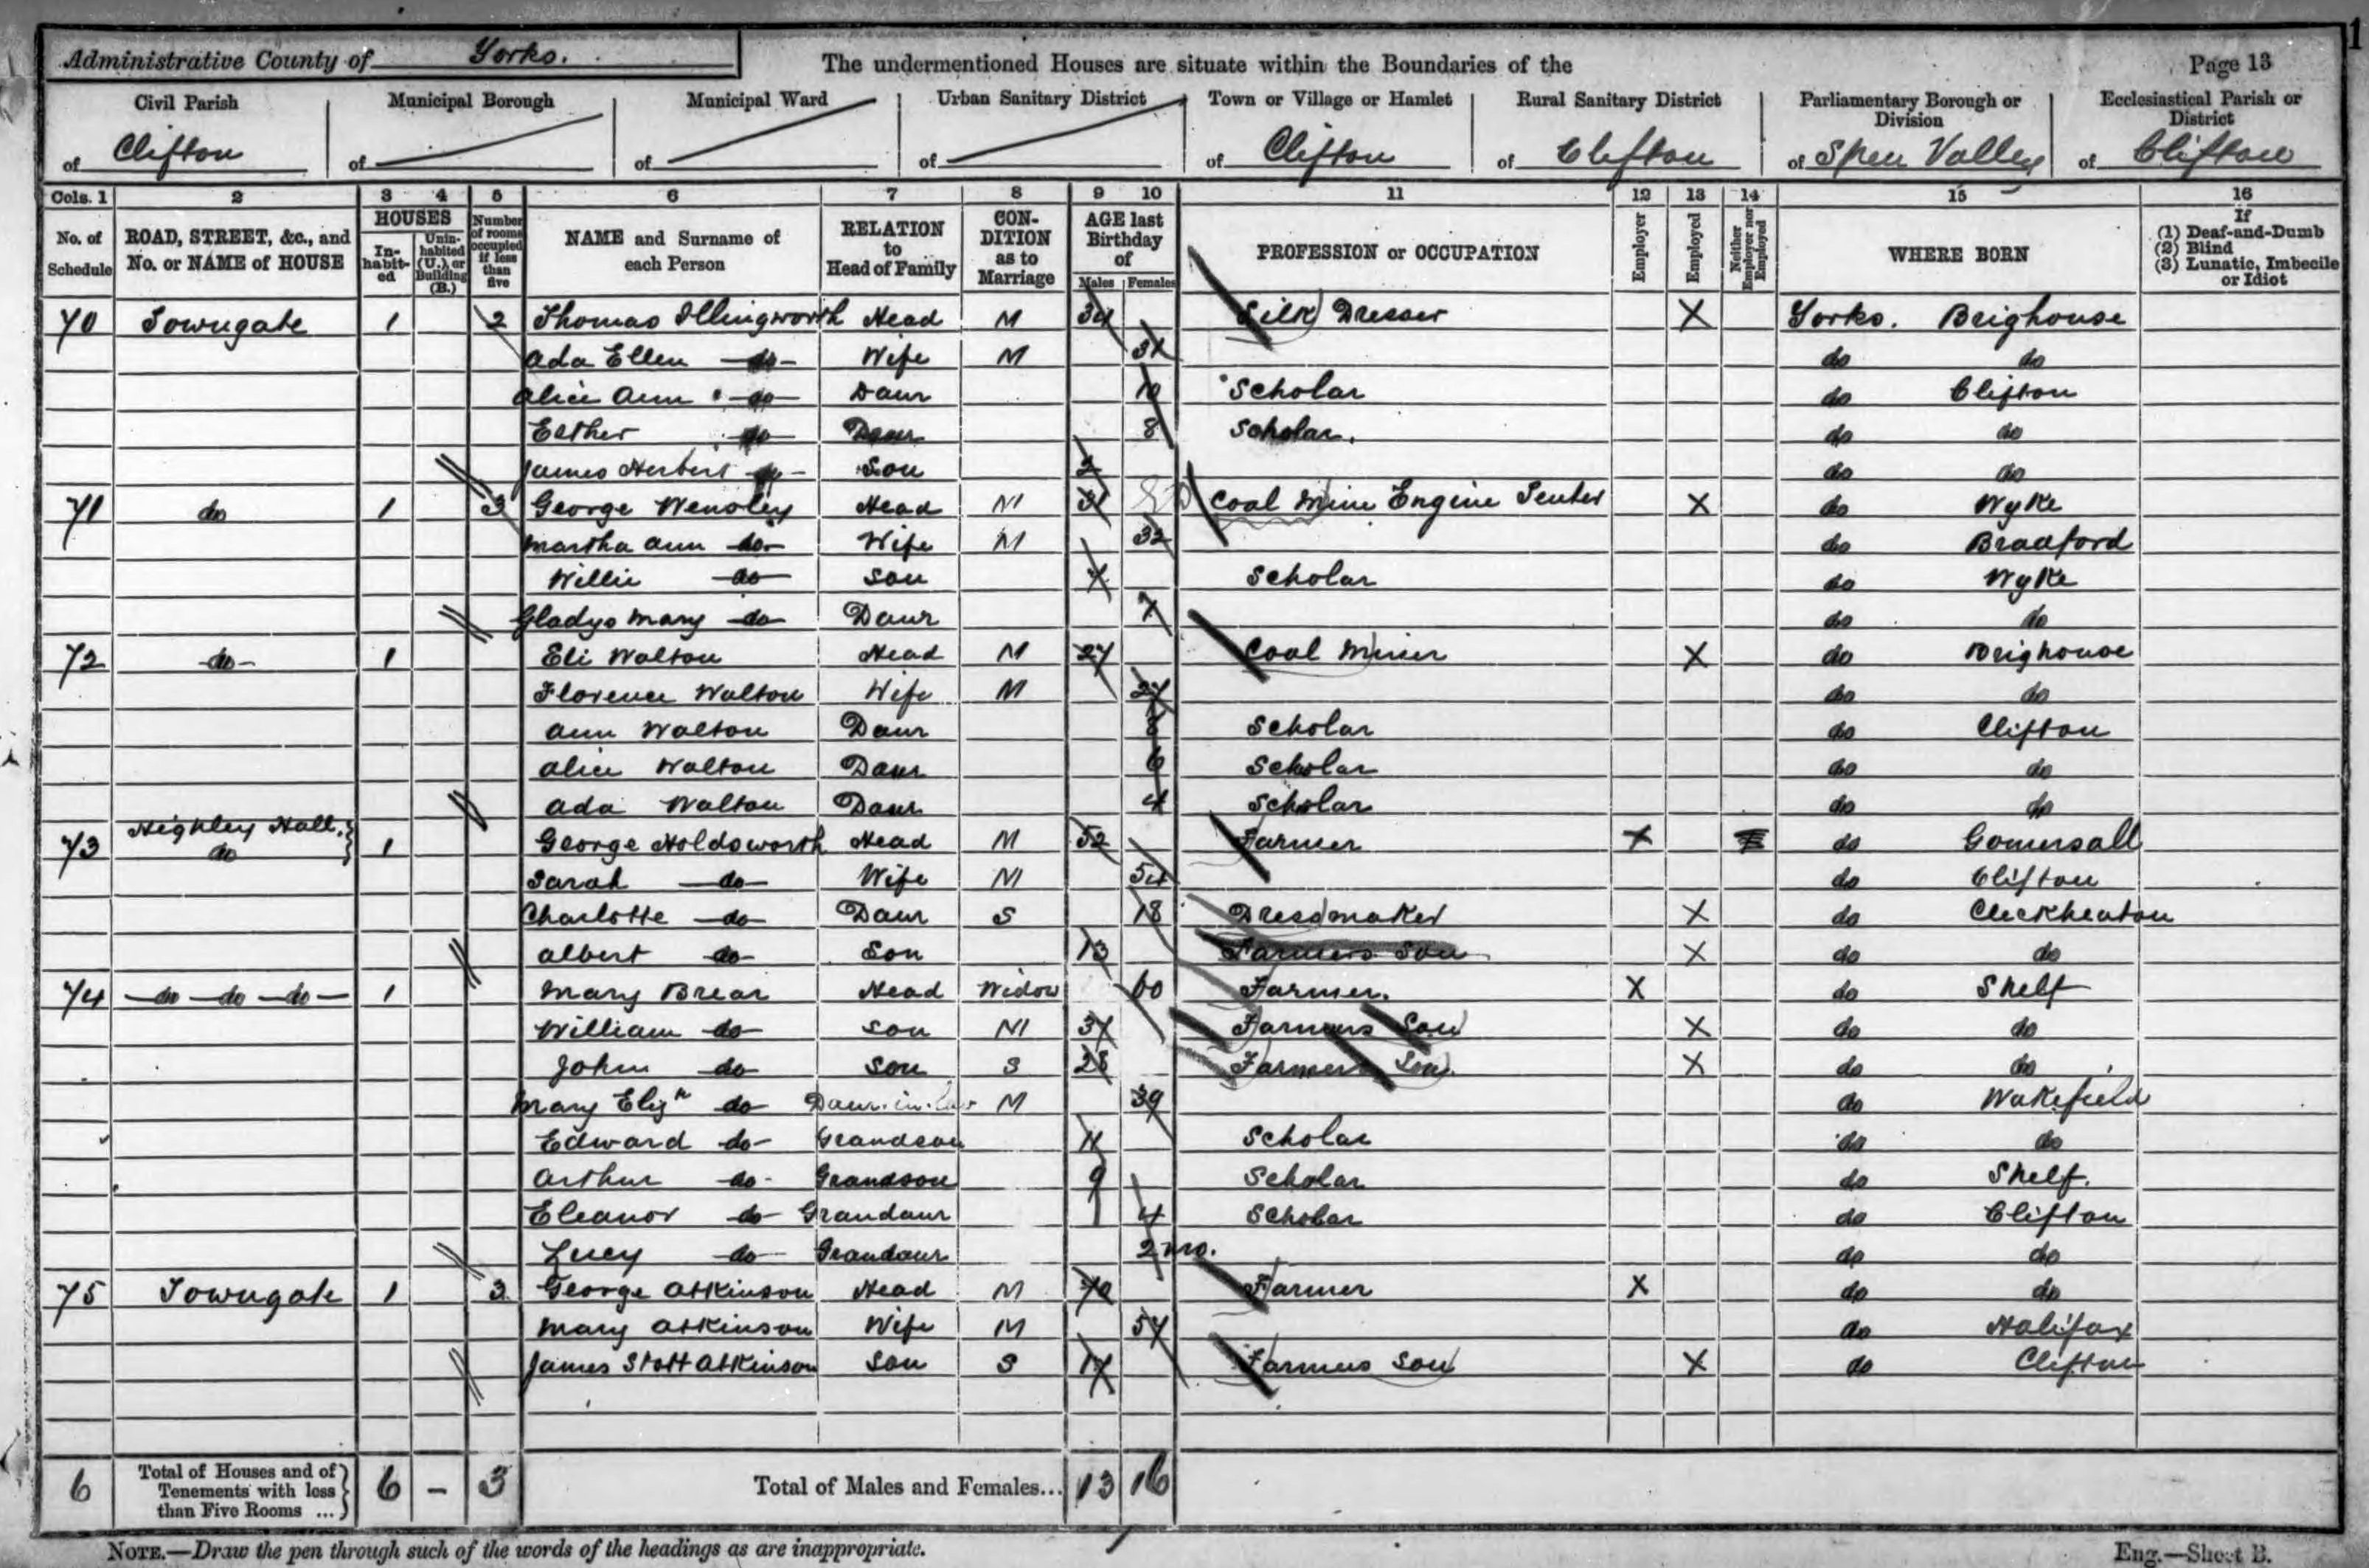 Administrative County of Yorks. The undermentioned Houses are situate within the Boundaries of the Page 13
Civil Parish Municipal Borough Municipal Ward Urban Sanitary District Town or Village or Hamlet Rural Sanitary District Parliamentary Borough or Division Ecclesiastical Parish or District
of Clifton of of of of Clifton of Clifton of Spen Valley of Clifton
Cols. 1 2 3 4 5 6 7 8 9 10 11 12 13 14 15 16
No. of Schedule ROAD, STREET, &c., and No. or NAME of HOUSE HOUSES In-habit-ed Unin-habited (U.), or Building (B.) Number of rooms occupied if less than five NAME and Surname of each Person RELATION to Head of Family CON-DITION as to Marriage AGE last Birthday of Males Females PROFESSION or OCCUPATION Employer Employed Neither Employer nor Employed WHERE BORN If (1) Deaf-and-Dumb (2) Blind (3) Lunatic, Imbecile or Idiot
70 Towngate 1 2 Thomas Illingworth Head M 34 Silk Dresser X Yorks. Brighouse
Ada Ellen do Wife M 31 do do
Alice Ann do Daur 10 Scholar do Clifton
Esther do Daur 8 Scholar. do do
James Herbert do Son 2 do do
71 do 1 3 George Wensley Head M 31 Coal Mine Engine Tenter X do Wyke
Martha Ann do Wife M 32 do Bradford
Willie do Son Scholar do Wyke
Gladys Mary do Daur do do
72 do 1 Eli Walton Head M 27 Coal Miner X do Brighouse
Florence Walton Wife M 27 do do
Ann Walton Daur 8 Scholar do Clifton
Alice Walton Daur 6 Scholar do do
Ada Walton Daur 4 Scholar do do
73 Highley Hall. do 1 George Holdsworth Head M 52 Farmer X do Gomersall
Sarah do Wife M 54 do Clifton
Charlotte do Daur S 18 Dressmaker X do Cleckheaton
Albert do Son 13 Farmers Son X do do
74 do do do 1 Mary Brear Head Widow 60 Farmer. X do Shelf
William do Son M 37 Farmers Son X do do
John do Son S 28 Farmers Son. X do do
Mary Elizh do Daur-in-law M 39 do Wakefield
Edward do Grandson 11 Scholar do do
Arthur do Grandson 9 Scholar do Shelf.
Eleanor do Grandaur 4 Scholar do Clifton
Lucy do Grandaur 2 mo. do do
75 Towngate 1 3 George Atkinson Head M 70 Farmer X do do
Mary Atkinson Wife M 57 do Halifax
James Stott Atkinson Son S 17 Farmers Son X do Clifton
6 Total of Houses and of Tenements with less than Five Rooms ... 6 - 3 Total of Males and Females... 13 16
NOTE.—Draw the pen through such of the words of the headings as are inappropriate. Eng.—Sheet B.